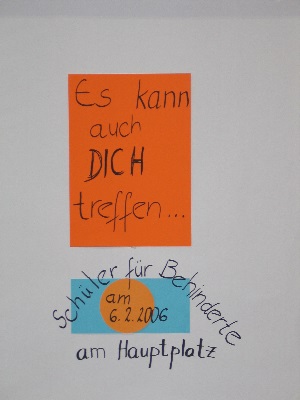 Es kann
auch
DICH
treffen...
Schüler für Behinderte
am
6.2.2006
am Hauptplatz